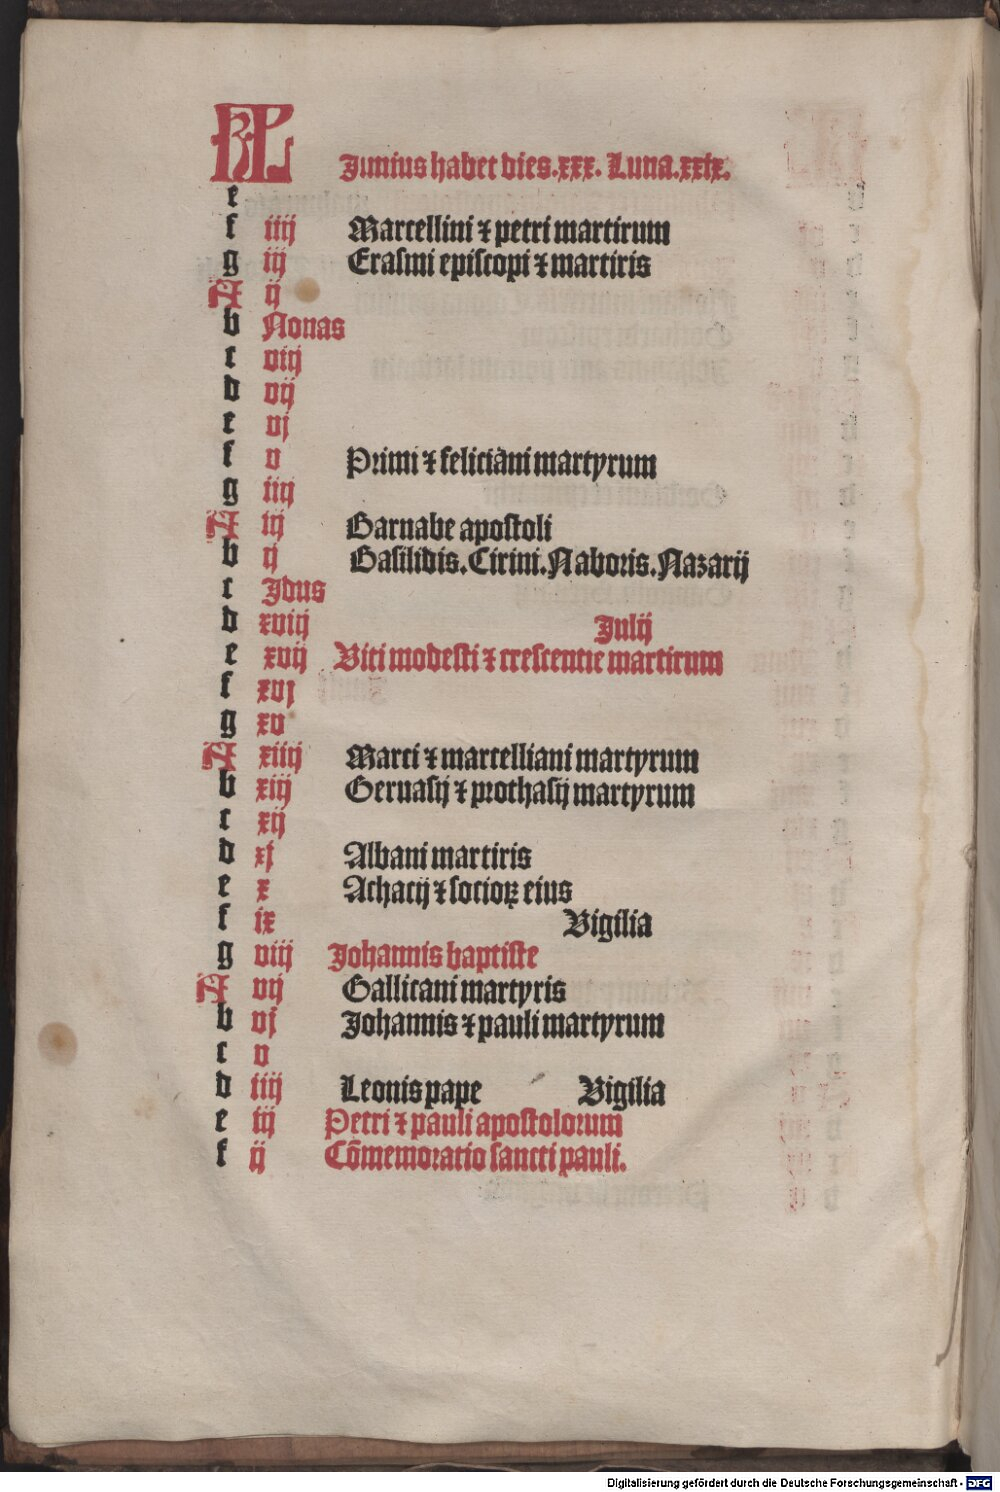 KL Junius habet dies.xxx. Luna.xxix.
e
f iiij Marcellini ⁊ petri martirum
g iij Erasmi episcopi ⁊ martiris
A ij
b Nonas
c viij
d vij
e vj
f v Primi ⁊ feliciani martyrum
g iiij
A iij Barnabe apostoli
b ij Basilidis. Cirini. Naboris. Nazarij
c Jdus
d xviij Julij
e xvij Viti modesti ⁊ crescentie martirum
f xvj
g xv
A xiiij Marci ⁊ marcelliani martyrum
b xiij Geruasij ⁊ prothasij martyrum
c xij
d xj Albani martiris
e x Achacij ⁊ socioꝝ eius
f ix Vigilia
g viij Johannis baptiste
A vij Gallicani martyris
b vj Johannis ⁊ pauli martyrum
c v
d iiij Leonis pape Vigilia
e iij Petri ⁊ pauli apostolorum
f ij Cõmemoratio sancti pauli.
Digitalisierung gefördert durch die Deutsche Forschungsgemeinschaft - DFG